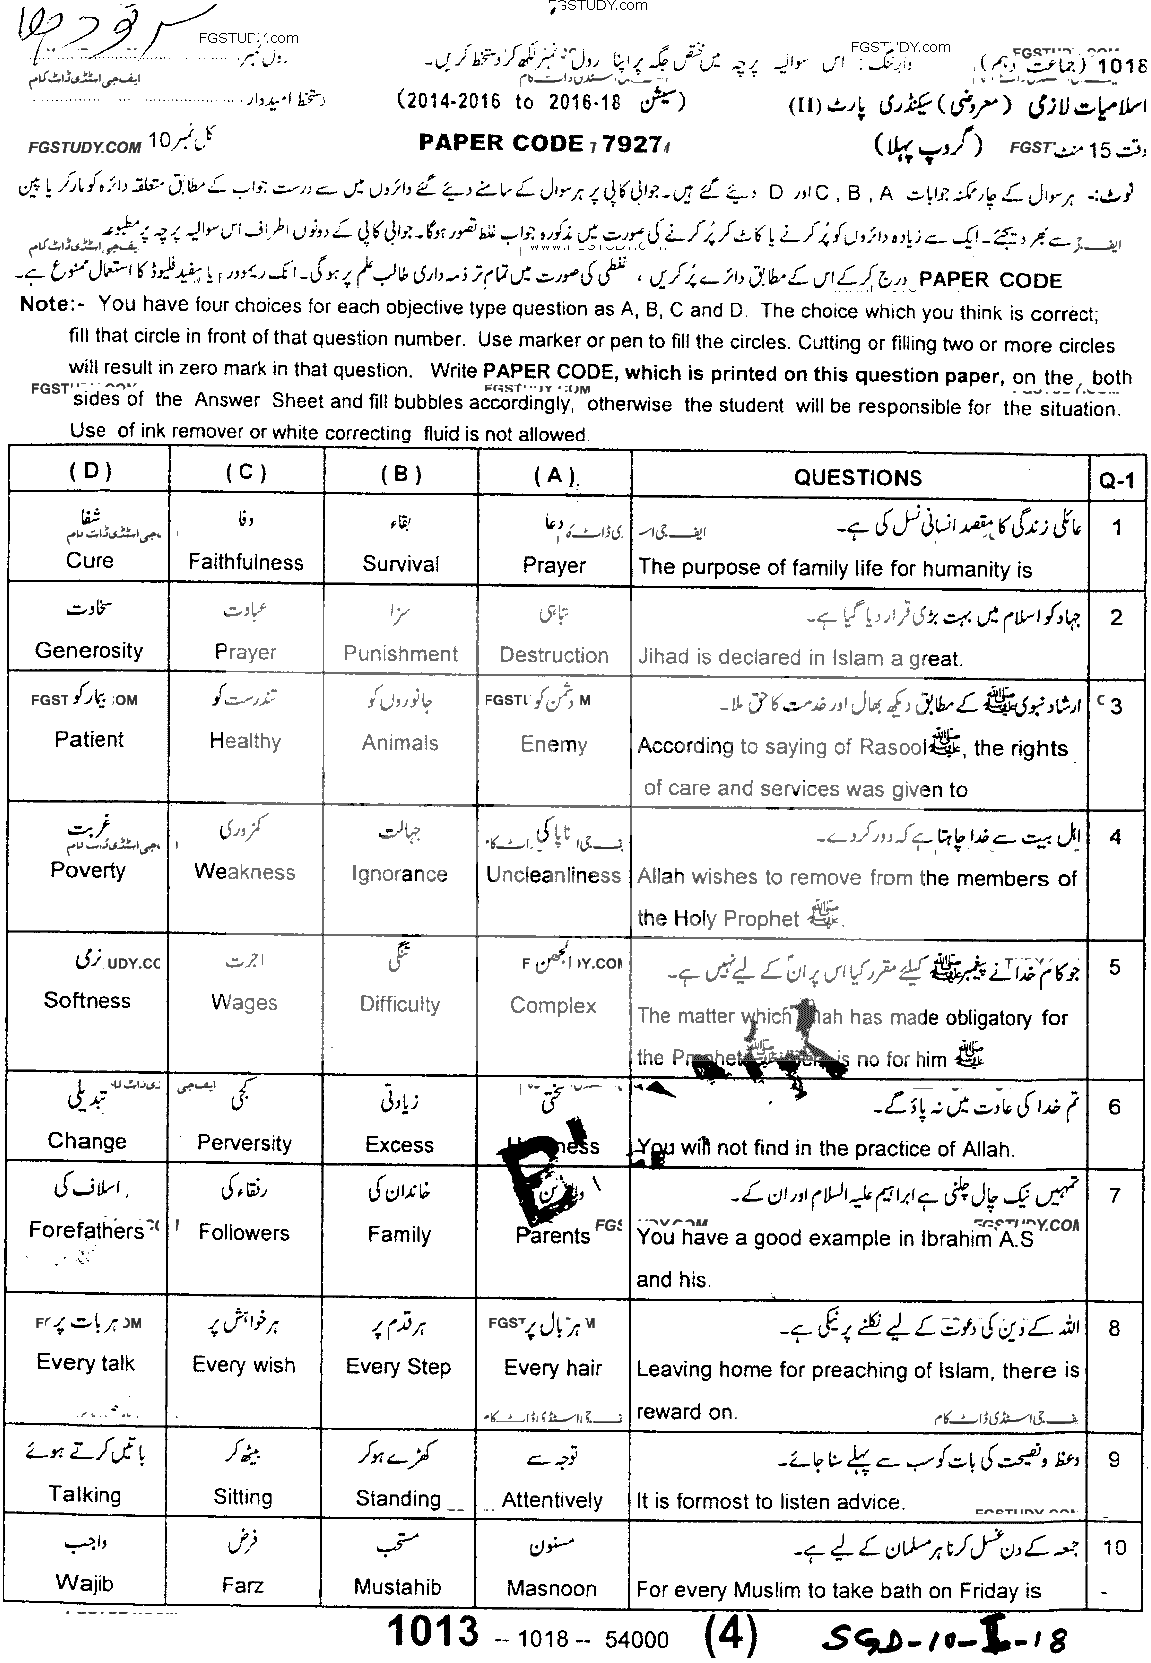 FGSTUDY.com
سرگودھا
FGSTUDY.com
1018 (جماعت دہم) وارننگ:۔ اس سوالیہ پرچہ میں مختص جگہ پر اپنا رول نمبر لکھ کر دستخط کریں۔ رول نمبر
FGSTUDY.com
ایف جی اسٹڈی ڈاٹ کام
اسلامیات لازمی (معروضی) سیکنڈری پارٹ (II) (سیشن 2014-2016 to 2016-18) دستخط امیدوار
وقت 15 منٹ (گروپ پہلا) PAPER CODE 7927 کل نمبر 10
FGSTUDY.COM
نوٹ:۔ ہر سوال کے چار ممکنہ جوابات A , B , C اور D دیئے گئے ہیں۔ جوابی کاپی پر ہر سوال کے سامنے دیئے گئے دائروں میں سے درست جواب کے مطابق متعلقہ دائرہ کو مارکر یا پین
سے بھر دیجئے۔ ایک سے زیادہ دائروں کو پُر کرنے یا کاٹ کر پُر کرنے کی صورت میں مذکورہ جواب غلط تصور ہوگا۔ جوابی کاپی کے دونوں اطراف اس سوالیہ پرچہ پر مطبوعہ
PAPER CODE درج کر کے اس کے مطابق دائرے پُر کریں ، غلطی کی صورت میں تمام تر ذمہ داری طالب علم پر ہوگی۔ انک ریموور یا سفید فلیوڈ کا استعمال ممنوع ہے۔
Note:- You have four choices for each objective type question as A, B, C and D. The choice which you think is correct;
fill that circle in front of that question number. Use marker or pen to fill the circles. Cutting or filling two or more circles
will result in zero mark in that question. Write PAPER CODE, which is printed on this question paper, on the both
sides of the Answer Sheet and fill bubbles accordingly, otherwise the student will be responsible for the situation.
Use of ink remover or white correcting fluid is not allowed.
(D) (C) (B) (A) QUESTIONS Q-1
شفا وفا بقاء دعا عائلی زندگی کا مقصد انسانی نسل کی ہے۔ 1
Cure Faithfulness Survival Prayer The purpose of family life for humanity is
سخاوت عبادت سزا تباہی جہاد کو اسلام میں بہت بڑی قرار دیا گیا ہے۔ 2
Generosity Prayer Punishment Destruction Jihad is declared in Islam a great.
بیمار کو تندرست کو جانوروں کو دشمن کو ارشاد نبوی ﷺ کے مطابق دیکھ بھال اور خدمت کا حق ملا۔ 3
Patient Healthy Animals Enemy According to saying of Rasool ﷺ, the rights
of care and services was given to
غربت کمزوری جہالت ناپاکی اہل بیت سے خدا چاہتا ہے کہ دور کر دے۔ 4
Poverty Weakness Ignorance Uncleanliness Allah wishes to remove from the members of
the Holy Prophet ﷺ.
نرمی اجرت تنگی الجھن جو کام خدا نے پیغمبر ﷺ کیلئے مقرر کیا اس پر ان کے لیے نہیں ہے۔ 5
Softness Wages Difficulty Complex The matter which Allah has made obligatory for
the Prophet ﷺ is no for him ﷺ
تبدیلی کجی زیادتی سختی تم خدا کی عادت میں نہ پاؤ گے۔ 6
Change Perversity Excess You will not find in the practice of Allah.
اسلاف کی رفقاء کی خاندان کی والدین تمہیں نیک چال چلنی ہے ابراہیم علیہ السلام اور ان کے۔ 7
Forefathers Followers Family Parents You have a good example in Ibrahim A.S
and his.
ہر بات پر ہر خواہش پر ہر قدم پر ہر بال پر اللہ کے دین کی دعوت کے لیے نکلنے پر نیکی ہے۔ 8
Every talk Every wish Every Step Every hair Leaving home for preaching of Islam, there is
reward on.
باتیں کرتے ہوئے بیٹھ کر کھڑے ہو کر توجہ سے وعظ و نصیحت کی بات کو سب سے پہلے سنا جائے۔ 9
Talking Sitting Standing Attentively It is formost to listen advice.
واجب فرض مستحب مسنون جمعہ کے دن غسل کرنا ہر مسلمان کے لیے ہے۔ 10
Wajib Farz Mustahib Masnoon For every Muslim to take bath on Friday is
1013 -- 1018 -- 54000 (4) SGD-10-I-18